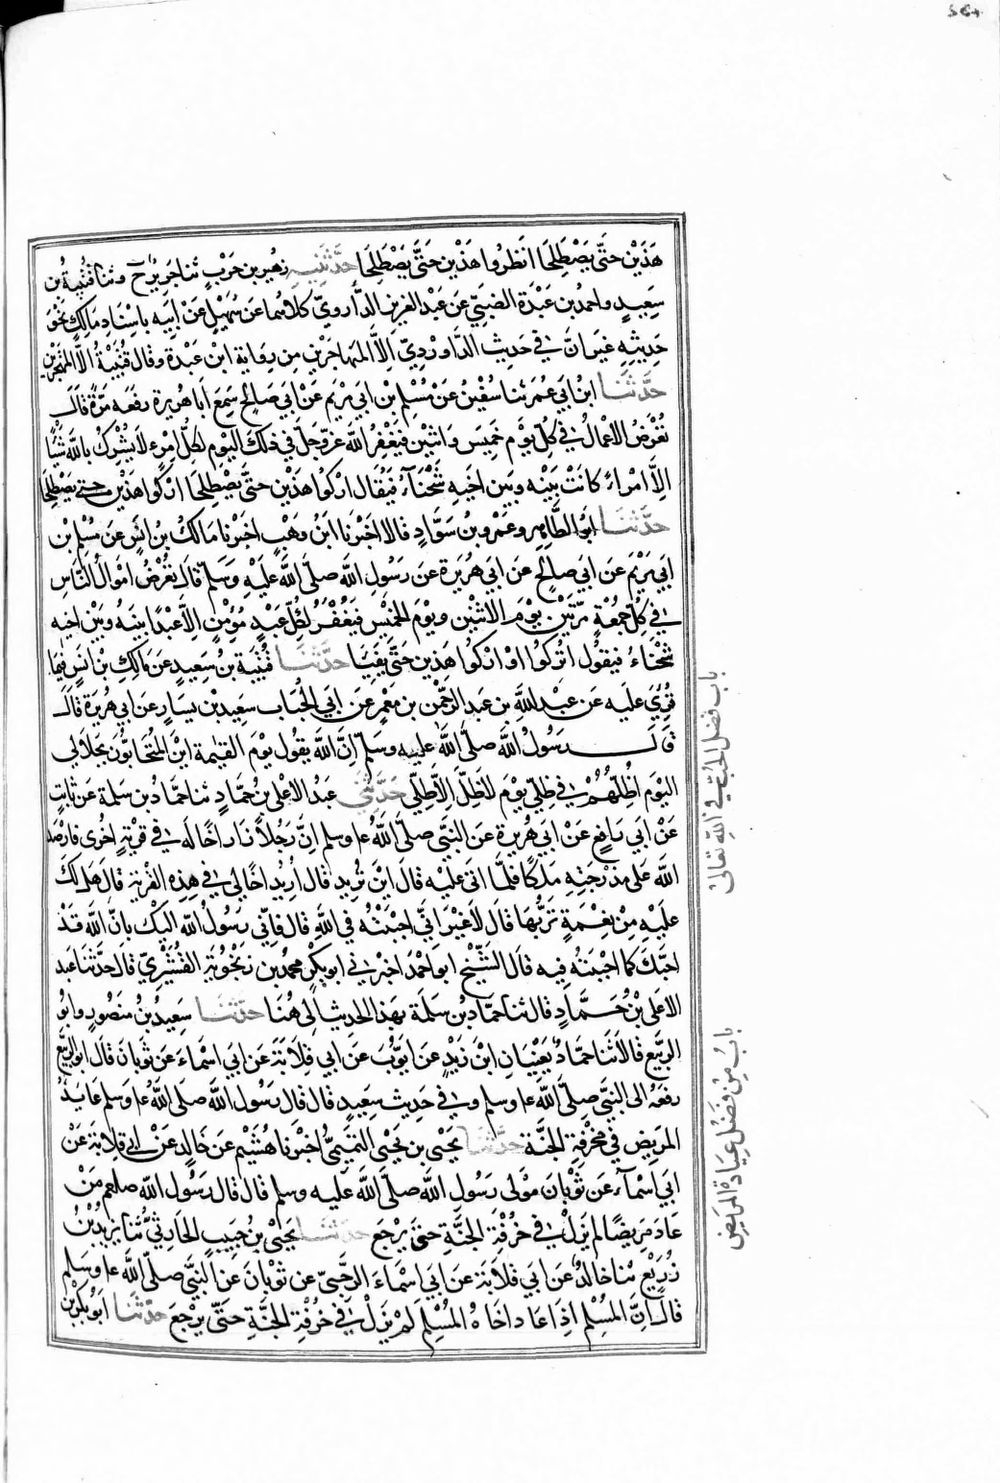 هَذَيْن حتَّى يَصْطَلِحَا انظروا هَذَيْن حَتَّى يَصْطَلِحَا حدَّثَنيِهِ زهير بن حَرْبٍ ثنا جَرِيرٌ ح وثنا قُتَيْبَةُ بن
سَعِيدٍ واحمد بن عَبْدَة الضبيّ عَن عَبْد العَزِيز الدَّراورديّ كلاهما عن سُهَيْلٍ عَنْ اَبِيَهِ باِسْنَادِ مَالِكٍ نحْوَ
حَدِيثِهِ غيرَ انَّ في حَدِيث الدَّراورْدِيّ الاَّ المتهَاجرَيْنِ مِن رِوَاية ابْن عَبْدَة وقال قُتَيْبَةُ الاَّ المهتجرين
حدَّثنَا ابنُ ابي عُمَر ثنا سُفْيٰنُ عَن مُسْلِمٍ بن ابي مَرْيَم عَنْ ابي صَالِح سَمِعَ اَبَا هُرَيْرة رفعَه مَرَّةً قَالَ
تُعْرَضُ الاعْمالُ في كلّ يَوْم خَمِيس وَاثنَيْن فيَغْفِرُ الله عزّ وجلَّ في ذلكَ اليَوْمِ لكلّ امْرِءٍ لاَ يُشْرِكُ بالله شيْأً
الاَّ امْرأً كانَتْ بَيْنَه وبَيْن اخيِهِ شَحْنَآءُ فيُقَال ارْكُوا هَذَيْن حتىَّ يَصْطَلِحَا ارْكُوا هَذَيْن حتى يَصْطَلِحَا
حدَّثنَا ابُوْ الطَّاهِر وعَمْرو بنُ سَوَّادٍ قالا اخْبَرنَا ابْنُ وَهْبٍ اخبَرنا مَالكُ بن انَسٍ عَن مُسْلم بن
ابي مَرْيَم عَن ابي صَالِحٍ عَن ابي هُرَيرَة عَن رَسُولِ الله صَلىَّ الله عَلَيْهِ وَسَلَّم قَالَ تعْرَضُ اموَالُ النَّاسِ
في كُلّ جُمُعَةٍ مَرَّتَيْن يوْمَ الاثنَيْن ويَوْمَ الخَمِيْس فيَغْفَرُ لكُلِّ عَبْدٍ مُؤْمنٍ الاَّ عَبْدًا بينَهُ وَبَيْن اخيه
شَحْنَاءُ فيقُول اترُكُوا اوْ ارْكُوا هَذَين حَتى يَفيَئا حدَّثَنَا قُتَيْبَة بن سَعِيدٍ عَن مَالِكِ بن انَسٍ فيما
قُرِئَ عَلَيه عَن عَبْد الله بن عبد الرّحمٰن بن مَعْمَرٍ عَن اَبِي الحُبَابِ سَعِيد بن يسَارٍ عَن ابي هُرَيْرَة قَالَ
قَالَ رَسُولُ الله صَلّى الله علَيه وَسَلّم اِنَّ الله يقُول يوْمَ القيٰمة ايْنَ المُتَحَابّوُنَ بجلالي
اليَوْمَ اُظِلّهُمْ في ظِلّي يَوْمَ لاَظلَّ الاَّ ظِلّي حَدَّثَني عبْدُ الاَعْلى بن حَمَّادٍ ثنا حَمَّاد بن سَلَمة عَن ثابِتٍ
عَنْ ابي رَافِعٍ عَنْ ابي هُريرةَ عَن النبَّي صَلّى الله ع وسلم اِنَّ رَجُلاً زَارَ اخًا لَه في قَرْيَةٍ اخُرى فارْصَدَ
الله عَلى مَدْرَجَتِهِ مَلَكًا فَلمَّا اَتى عَليْه قالَ ايْنَ تُرِيد قَالَ اُرِيدُ اخَالي في هذِهِ القَرْيَة قالَ هَل لكَ
علَيْهِ مِنْ نِعْمَةٍ تَرُبّها قَالَ لاَ غيْرَ اَنّي احْبَبْتُه في الله قالَ فاِنّي رَسُولُ الله اليْكَ باَنَّ الله قدْ
احَبّكَ كما احْبَبْتَهُ فيه قالَ الشّيْخ ابو احْمَد اخبرَني ابو بكْرٍ محمّد بن زنجُويَة القُشَيْرِيّ قالَ حَدَّثنَا عَبد
الاعَلى بنُ حَمَّادٍ قال ثنا حَمّاد بن سَلَمَةَ بهذا الحديث الي هُنَا حدَّثنَا سَعِيدُ بنُ مَنصُورٍ وابُو
الرّبيْعِ قالاَ ثنا حمّادٌ يَعْنِيانِ ابْنَ زَيْدٍ عَن ايّوُبَ عَن ابي قلابَةَ عَن ابي اسْمَاءَ عَن ثوْبَانَ قالَ ابُو الرّبيْعِ
رفعَهُ الى النبّي صلّى الله ع وسلم وفي حَديث سَعِيدٍ قال قال رَسُولُ الله صَلى الله ع وسَلم عَايدُ
المَرِيض في مَخْرَفَةِ الجَنَّة حدَّثنَا يَحْيى بن يَحْيى التّميمىُّ اخْبَرنا هُشَيْم عَن خَالِدٍ عَن ابي قلابة عَنْ
ابي اَسْمآءَ عَن ثَوْبانَ مَوْلى رَسُولِ الله صَلّى الله عَلَيه وسلم قالَ قالَ رَسُولُ الله صلعم مَنْ
عَادَ مَرِيضًا لم يَزَلْ في خُرْفَةِ الجنَّةِ حتىَّ يَرْجِعَ حدَّثنَا يَحْيى بنُ حَبِيبٍ الحَارِثيُّ ثنَا يَزِيدُ بْنُ
زُرَيْعٍ ثنا خالدٌ عَن ابي قِلابَةَ عَن ابي اسْمَاءَ الرّحَبيّ عن ثوْبَانَ عَن النبَّي صَلّى الله ع وسَلم
قالَ اِنَّ المُسْلِم اِذَا عَادَ اخَاهُ المُسْلِم لَمْ يَزَلْ في خُرْفَةِ الجنَّةِ حَتىَّ يَرْجِعَ حدَّثنَا ابُو بكْرِ بن
باب فضل الحبّ في الله تعالى
بابُ مِنْ فضْل عيَادة المرَيض